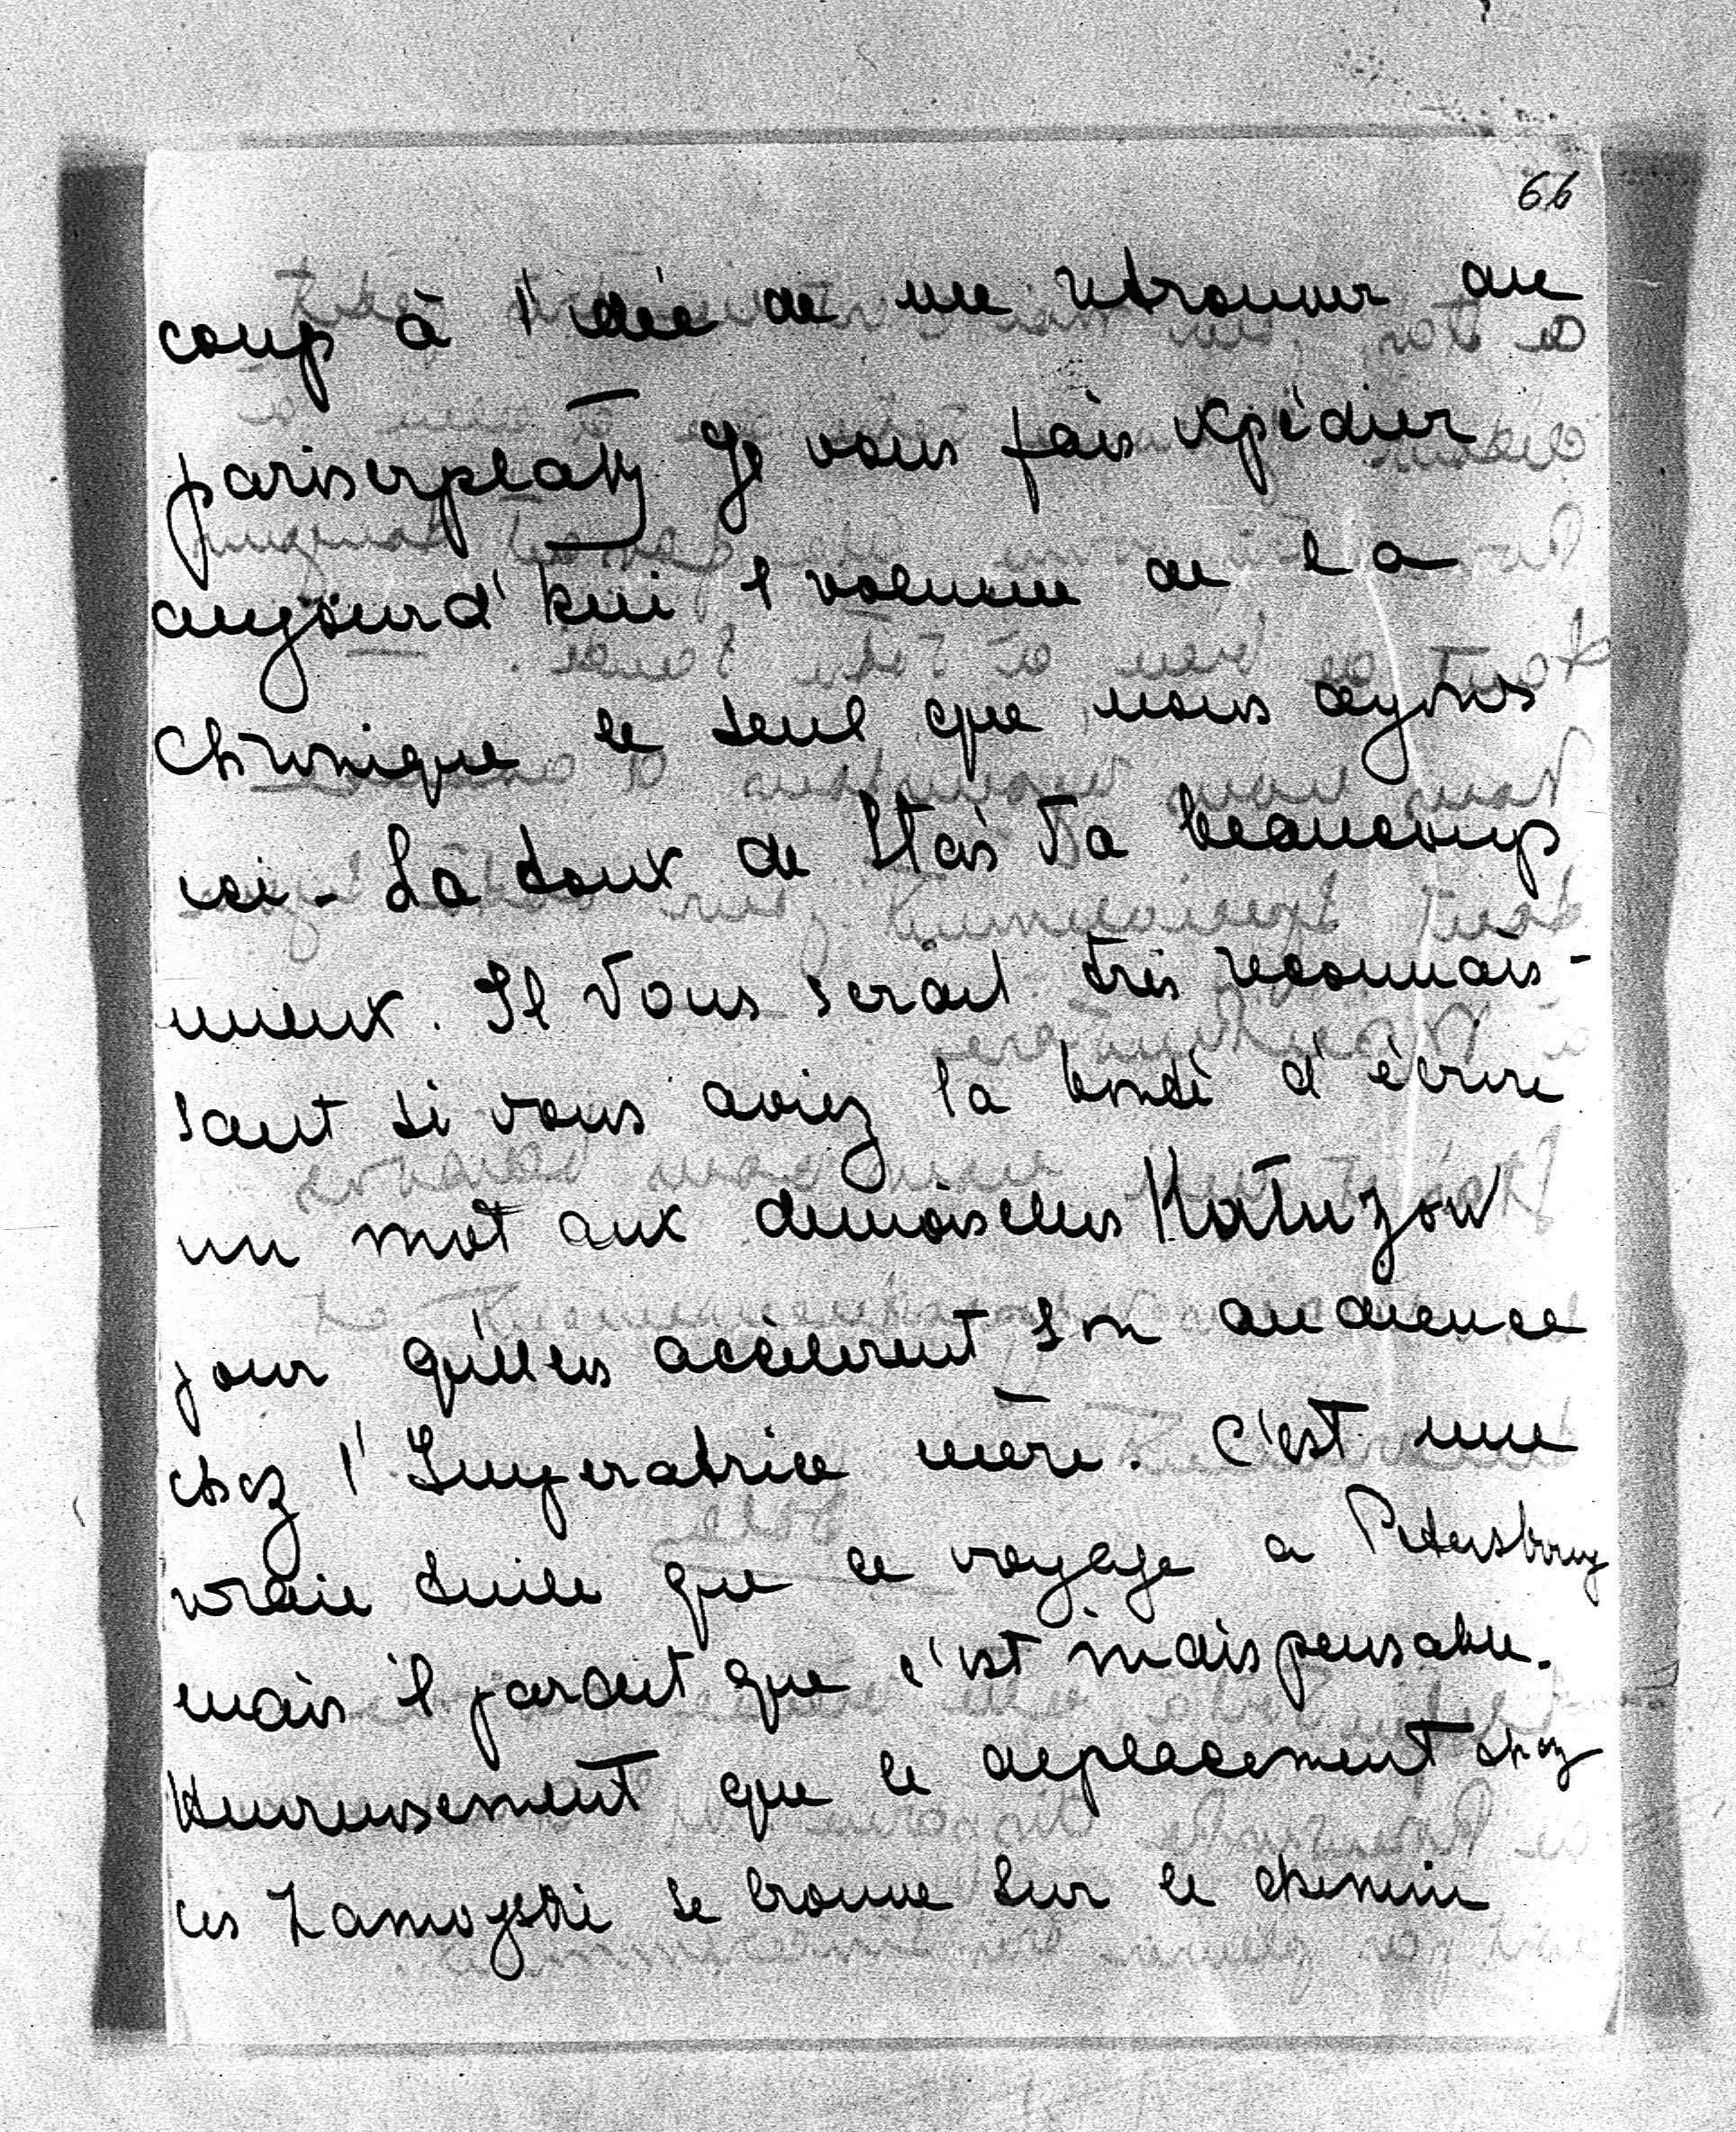 66
coup à l'idée de me retrouver au
pariserplatz Je vous fais expédier
aujourd'hui 1 volume de la
Chronique le seul que nous ayons
ici - La toux de Stas va beaucoup
mieux. Il vous serait très reconnais-
sant si vous aviez la bonté d'écrire
un mot aux demoiselles Kutuzow
pour qu'elles accélèrent son audience
chez l'Imperatrice mère. C'est une
vraie tuile que ce voyage a Petersbourg
mais il parait que c'est indispensable.
Heureusement que le deplacement chez
les Zamoyski se trouve sur le chemin